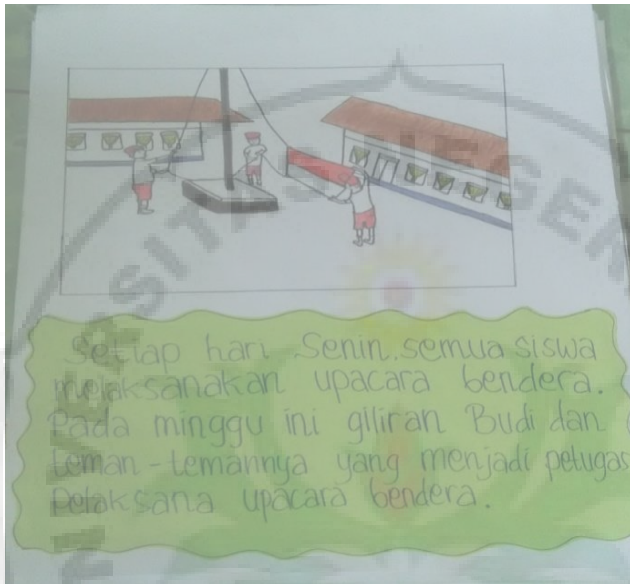 Setiap hari Senin, semua siswa
melaksanakan upacara bendera.
Pada minggu ini giliran Budi dan
teman-temannya yang menjadi petugas
pelaksana upacara bendera.